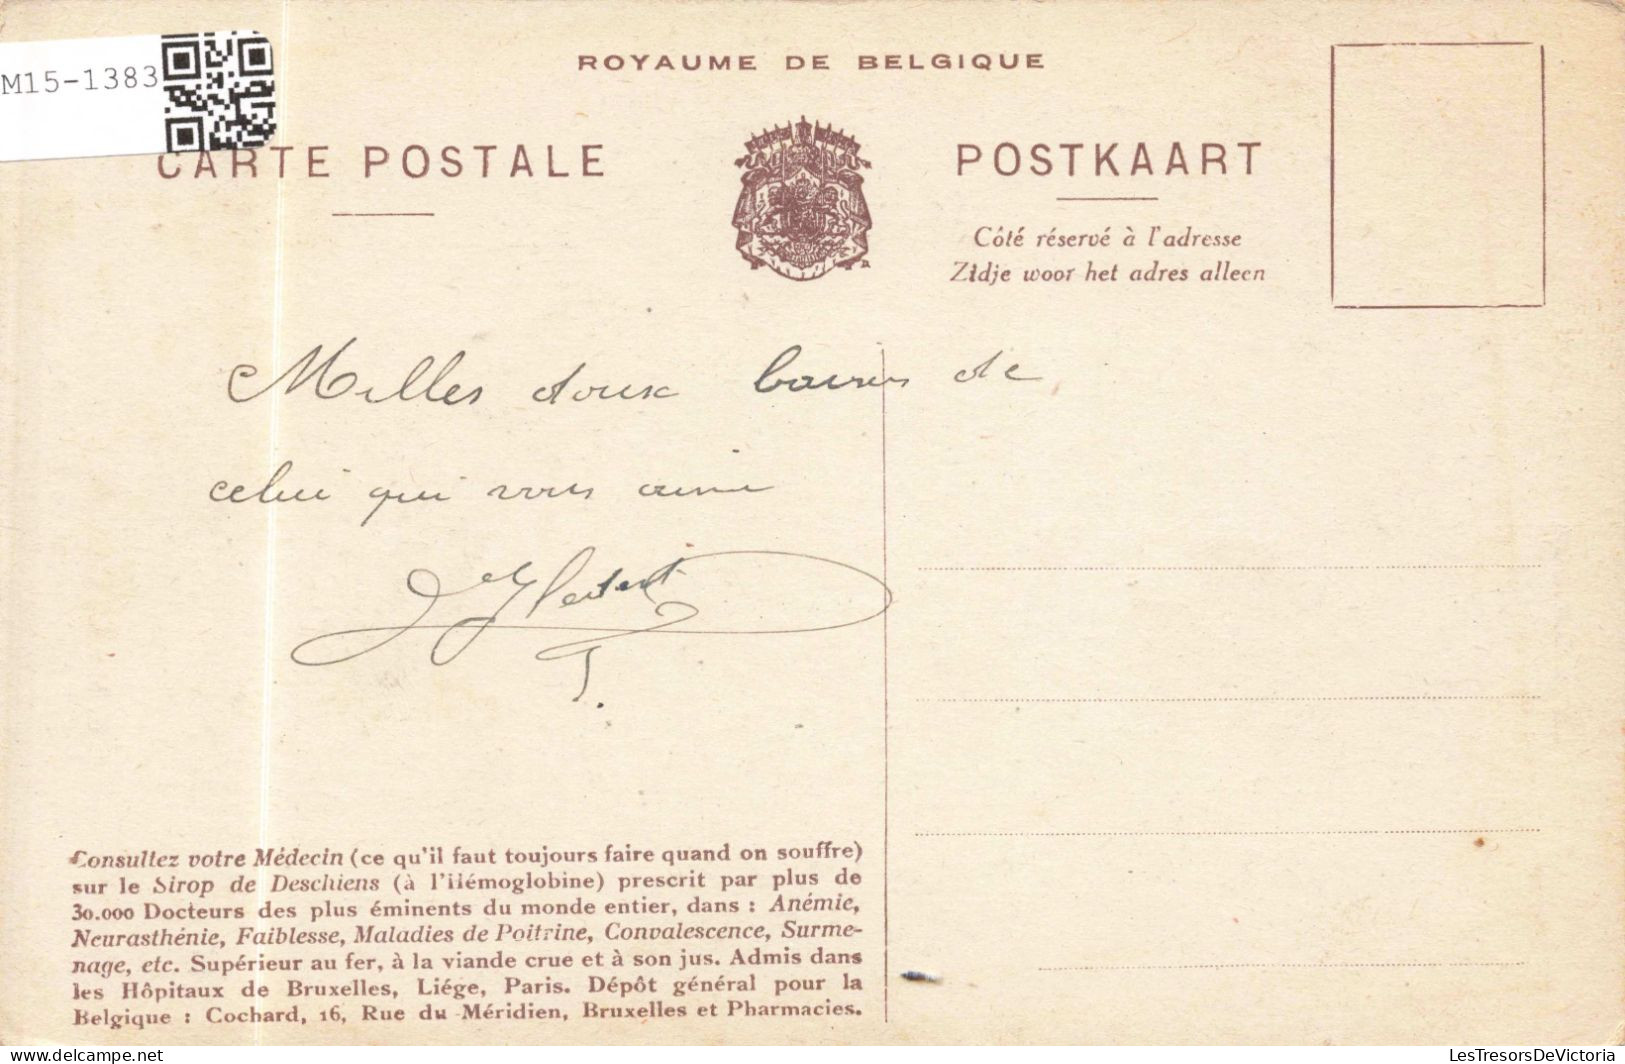 M15-1383
ROYAUME DE BELGIQUE
CARTE POSTALE
POSTKAART
Côté réservé à l'adresse
Zidje woor het adres alleen
Milles doux baisers de
celui qui vous aime
Consultez votre Médecin (ce qu'il faut toujours faire quand on souffre)
sur le Sirop de Deschiens (à l'Hémoglobine) prescrit par plus de
30.000 Docteurs des plus éminents du monde entier, dans : Anémie,
Neurasthénie, Faiblesse, Maladies de Poitrine, Convalescence, Surme-
nage, etc. Supérieur au fer, à la viande crue et à son jus. Admis dans
les Hôpitaux de Bruxelles, Liége, Paris. Dépôt général pour la
Belgique : Cochard, 16, Rue du Méridien, Bruxelles et Pharmacies.
https://www.delcampe.net/fr/collections/store/LesTresorsDeVictoria
LesTresorsDeVictoria